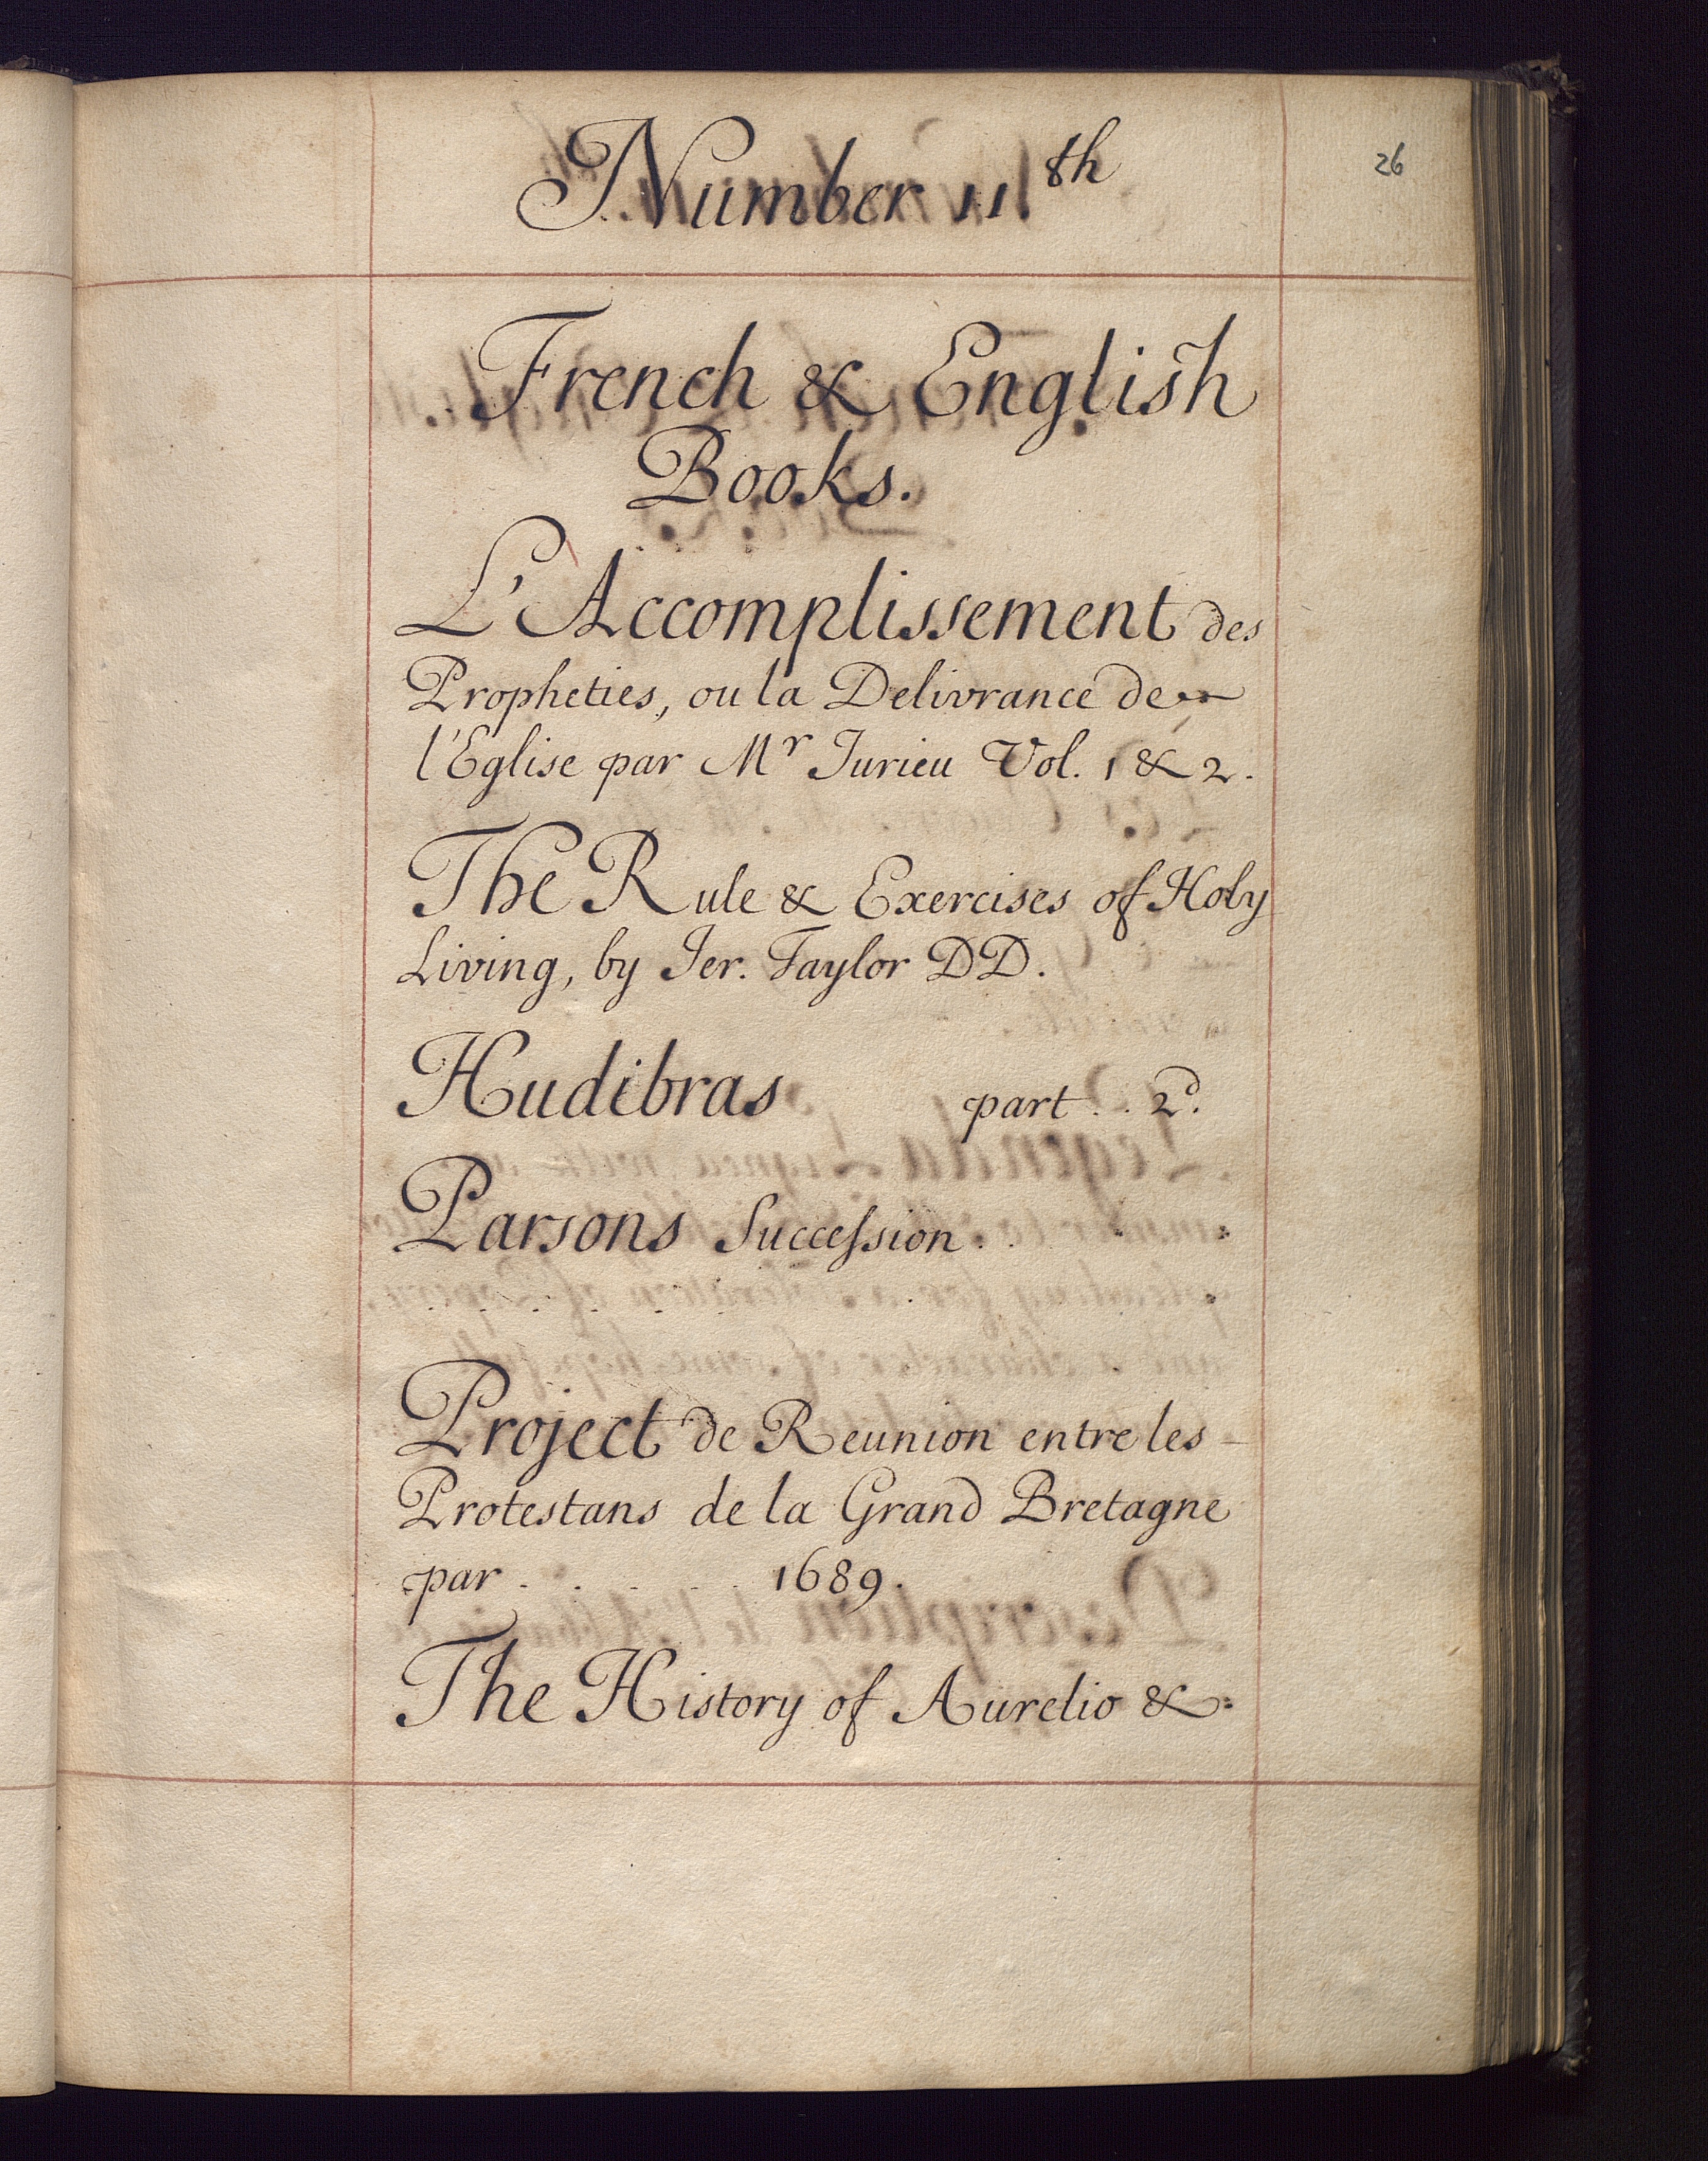 Number 11th
26
French & English
Books.
L'Accomplissement des
Propheties, ou la Delivrance de
l'Eglise par Mr Jurieu Vol. 1 & 2.
The Rule & Exercises of Holy
Living, by Jer. Taylor DD.
Hudibras part . . 2d.
Parsons Succession . .
Project de Reunion entre les
Protestans de la Grand Bretagne
par . . . . . 1689.
The History of Aurelio &